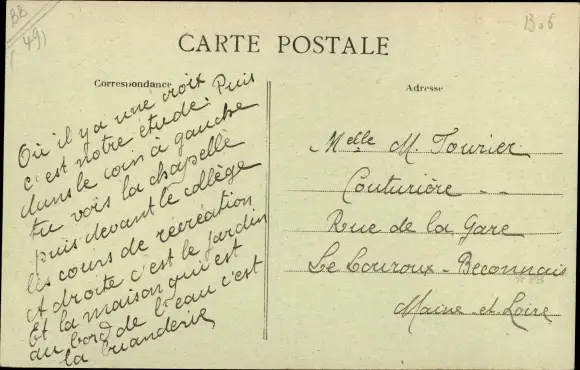 BB
(49)
13.6
CARTE POSTALE
Correspondance
Adresse
Où il y a une croix
c'est notre étude. Puis
dans le coin à gauche
tu vois la chapelle
puis devant le collège
les cours de récréation
A droite c'est le jardin
Et la maison qui est
au bord de l'eau c'est
la buanderie
Melle M. Tourier
Couturière - -
Rue de la Gare
Le Louroux-Beconnais
Maine-et-Loire